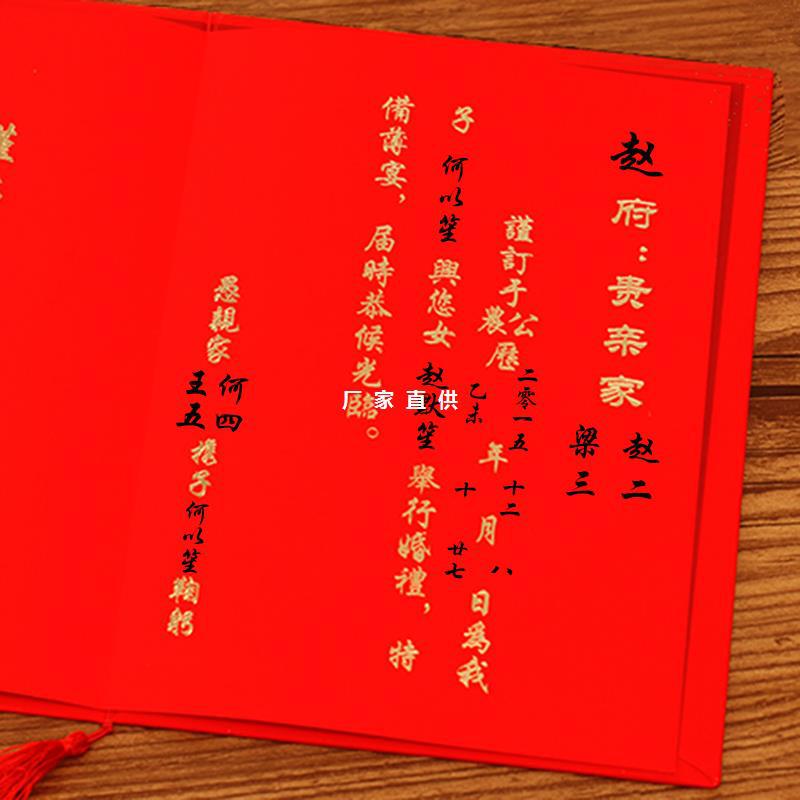 赵府：贵亲家
赵二
梁三
謹訂于公農歷
二零一五
乙未
年
十二
十
月
八
廿七
日為我
子何以笙興您女赵默笙舉行婚禮，特
備薄宴，届時恭候光臨。
愚親家
何四
王五
攜子何以笙鞠躬
厂家直供